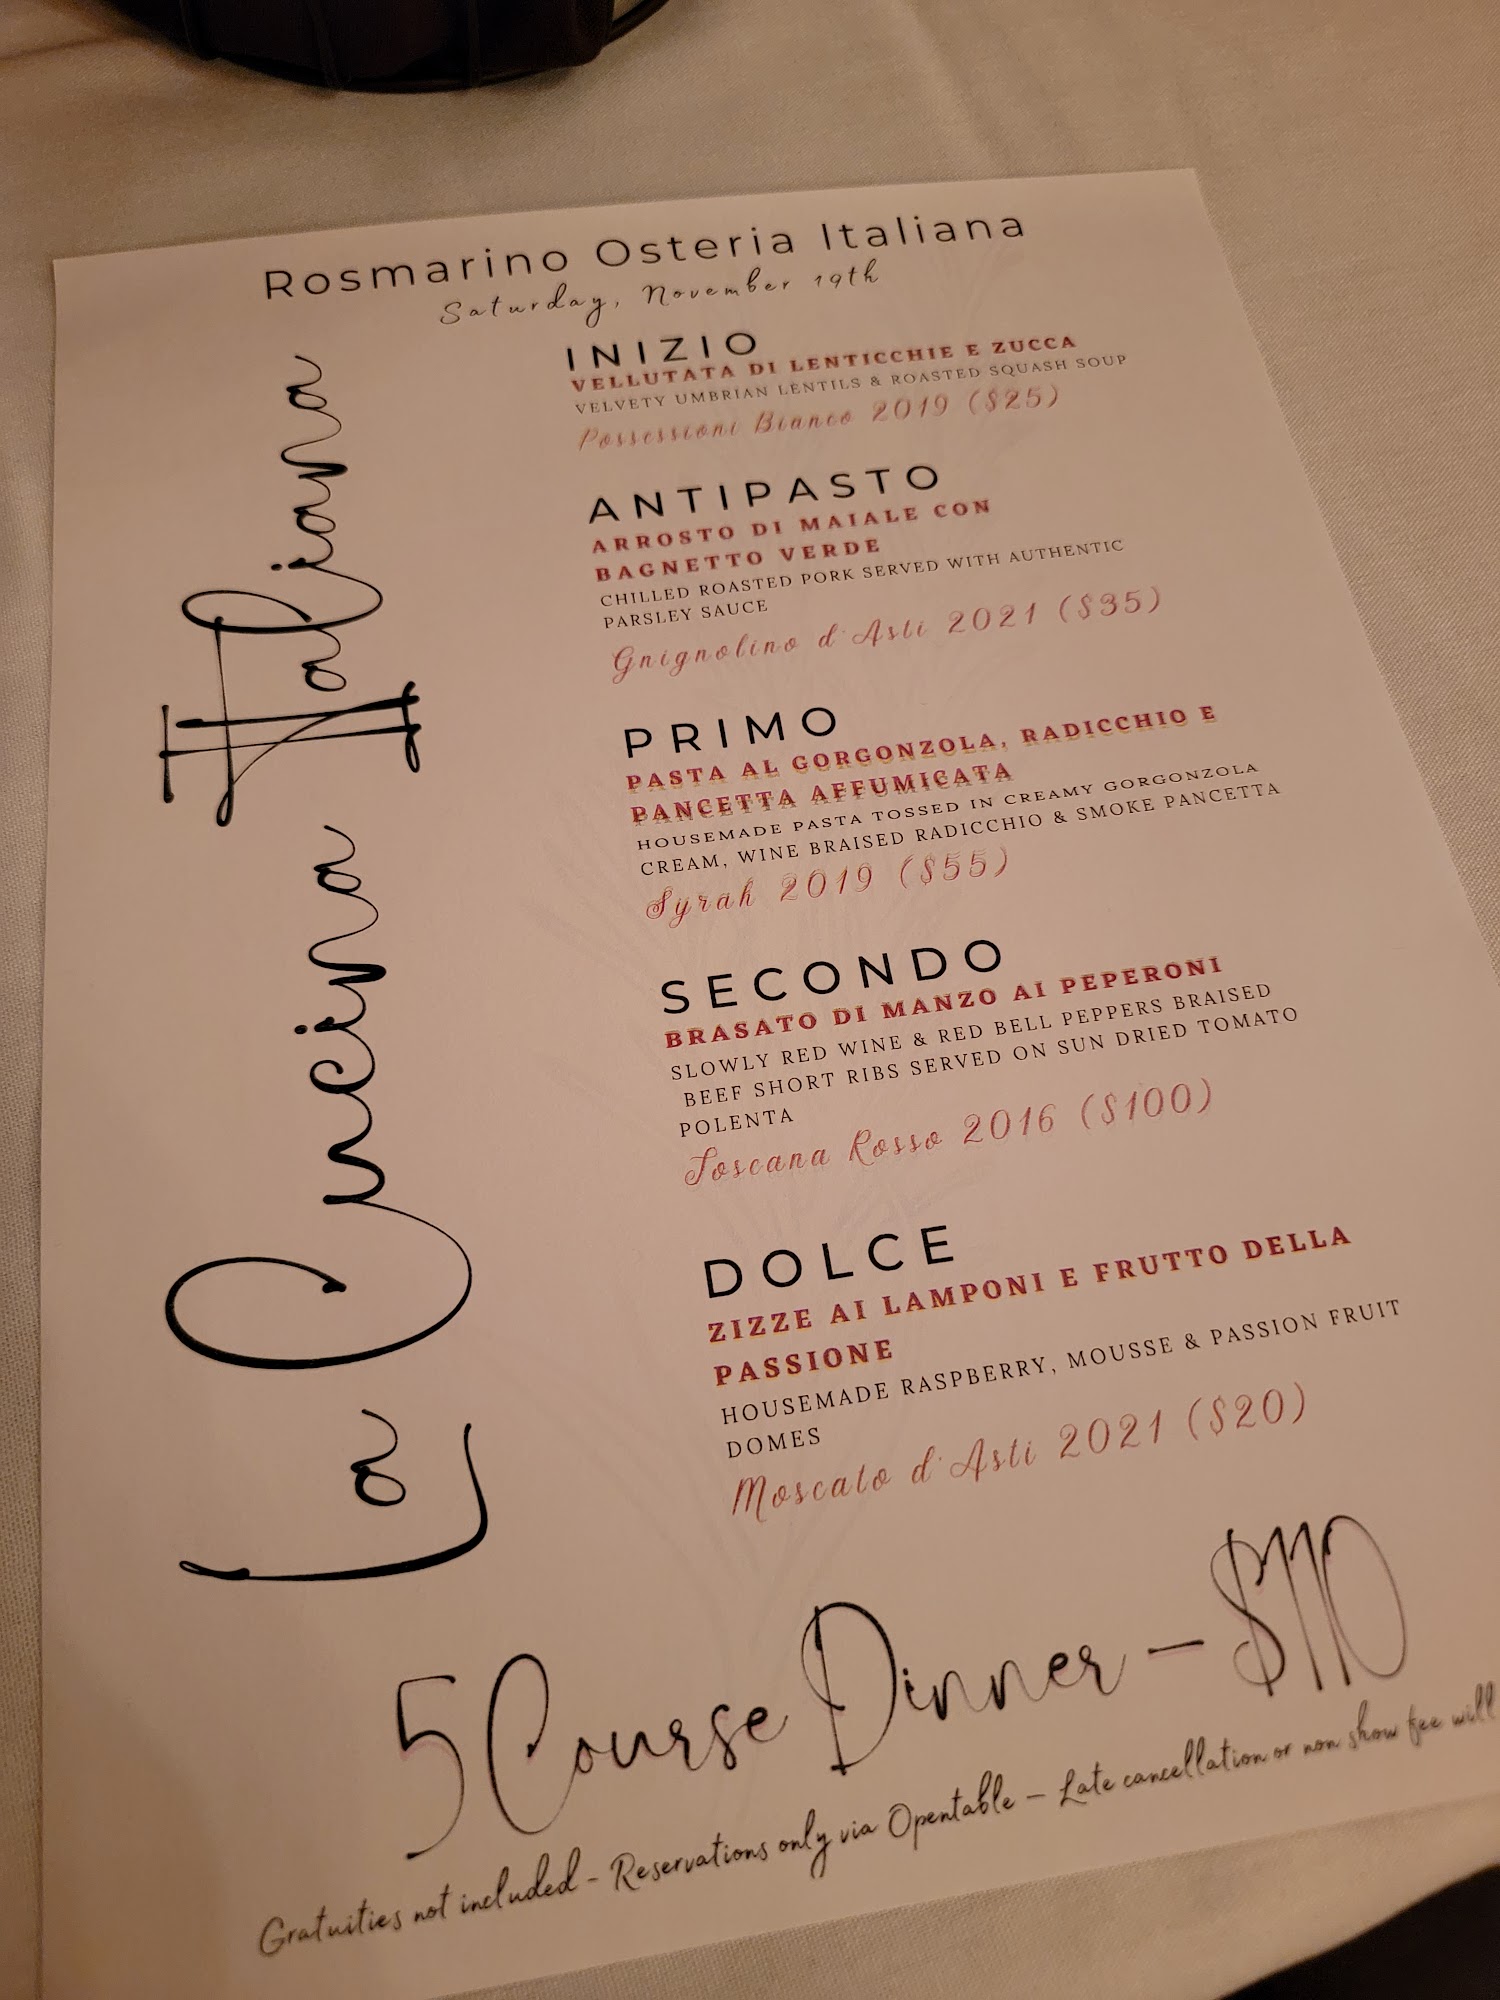 Rosmarino Osteria Italiana
Saturday, November 19th
La Cucina Italiana
INIZIO
VELLUTATA DI LENTICCHIE E ZUCCA
VELVETY UMBRIAN LENTILS & ROASTED SQUASH SOUP
Possessioni Bianco 2019 ($25)
ANTIPASTO
ARROSTO DI MAIALE CON
BAGNETTO VERDE
CHILLED ROASTED PORK SERVED WITH AUTHENTIC
PARSLEY SAUCE
Gnignolino d'Asti 2021 ($35)
PRIMO
PASTA AL GORGONZOLA, RADICCHIO E
PANCETTA AFFUMICATA
HOUSEMADE PASTA TOSSED IN CREAMY GORGONZOLA
CREAM, WINE BRAISED RADICCHIO & SMOKE PANCETTA
Syrah 2019 ($55)
SECONDO
BRASATO DI MANZO AI PEPERONI
SLOWLY RED WINE & RED BELL PEPPERS BRAISED
BEEF SHORT RIBS SERVED ON SUN DRIED TOMATO
POLENTA
Toscana Rosso 2016 ($100)
DOLCE
ZIZZE AI LAMPONI E FRUTTO DELLA
PASSIONE
HOUSEMADE RASPBERRY, MOUSSE & PASSION FRUIT
DOMES
Moscato d'Asti 2021 ($20)
5 Course Dinner - $110
Gratuities not included - Reservations only via Opentable - Late cancellation or non show fee will